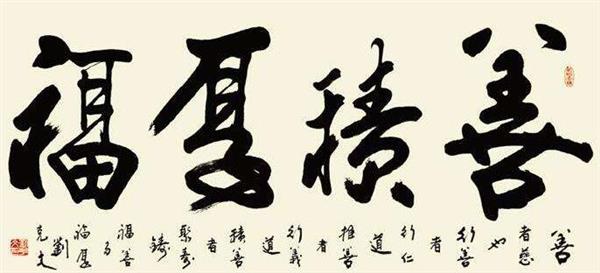 善積厚福
善
者慈
也
行善
者
行仁
道
推善
者
行義
道
積善
者
聚壽
鑄
福善
乃
福厚
劉
克文